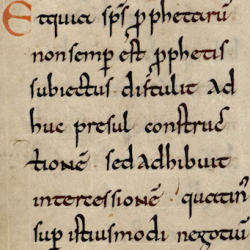 Et quia sp̄s ꝓphetarū
non semp̱ est ꝓphetis
subiectus distulit ad
huc presul construc
tionē sed adhibuit
intercessionē quatin᷒
sup̱ istiusmodi negotiū